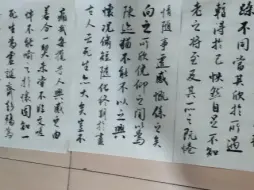 躁不同當其欣於所遇
暫得於己快然自足不知
老之將至及其所之既倦
情隨事遷感慨係之矣
向之所欣俛仰之間以為
陳迹猶不能不以之興
懷況脩短隨化終期於盡
古人云死生亦大矣豈不
痛哉每攬昔人興感之由
若合一契未嘗不臨文嗟
悼不能喻之於懷固知一
死生為虛誕齊彭殤為